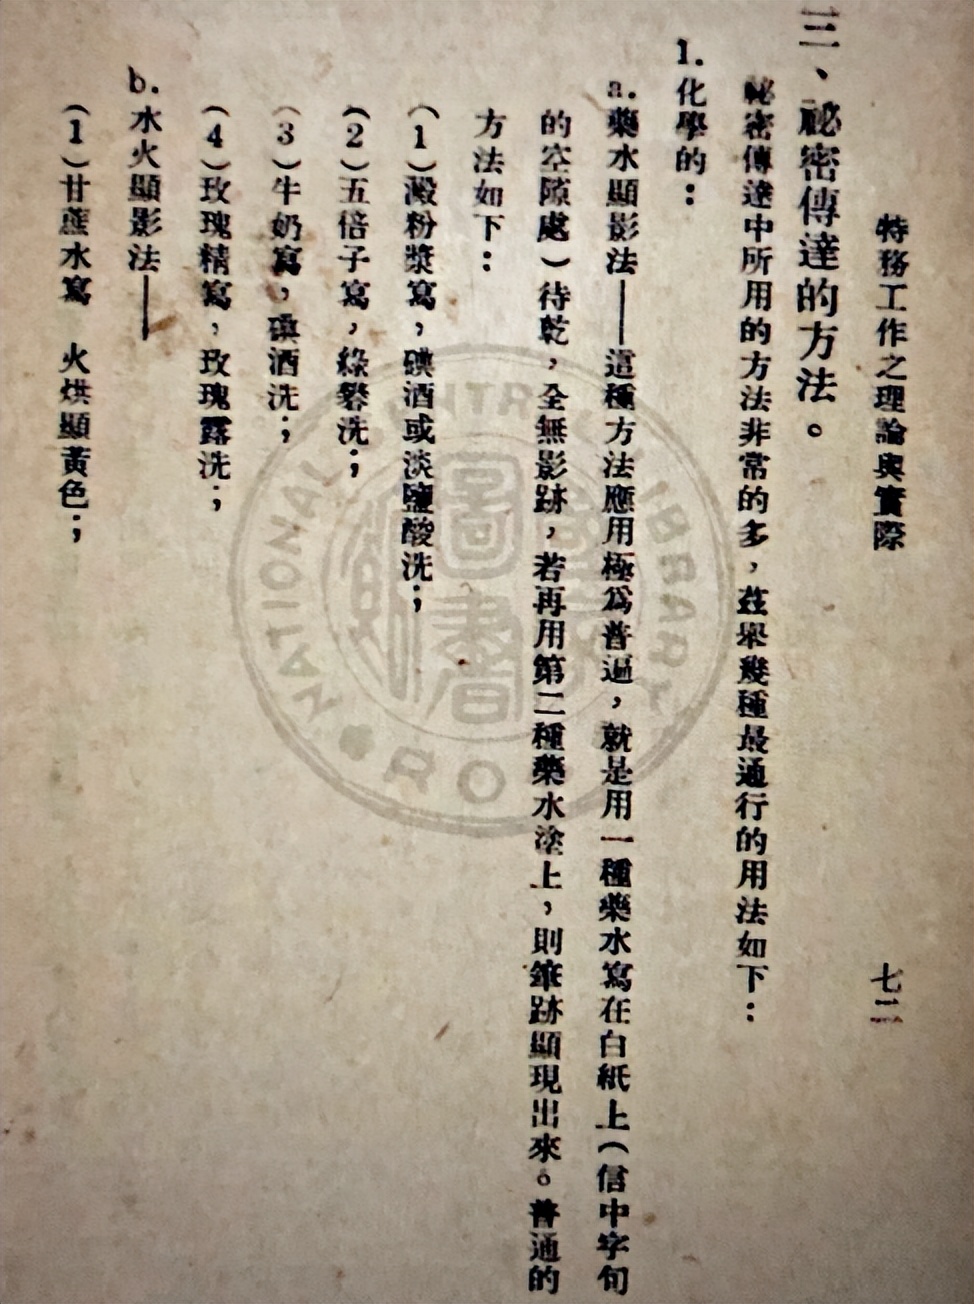 特務工作之理論與實際 七二
三、祕密傳達的方法。
祕密傳達中所用的方法非常的多，茲舉幾種最通行的用法如下：
1.化學的：
a.藥水顯影法——這種方法應用極爲普遍，就是用一種藥水寫在白紙上（信中字句
的空隙處）待乾，全無影跡，若再用第二種藥水塗上，則筆跡顯現出來。普通的
方法如下：
（1）澱粉漿寫，碘酒或淡鹽酸洗；
（2）五倍子寫，綠礬洗；
（3）牛奶寫，碘酒洗；
（4）玫瑰精寫，玫瑰露洗；
b.水火顯影法——
（1）甘蔗水寫 火烘顯黃色；
NATIONAL CENTRAL LIBRARY
ROC